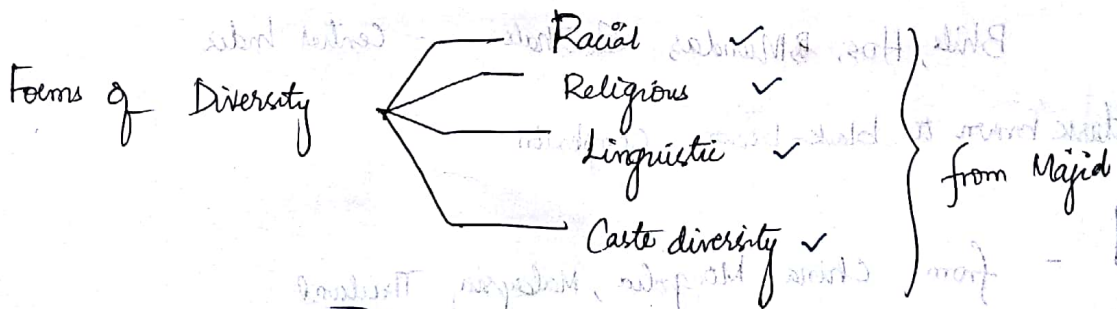 Forms of Diversity
Racial ✓
Religious ✓
Linguistic ✓
Caste diversity ✓
from Majid